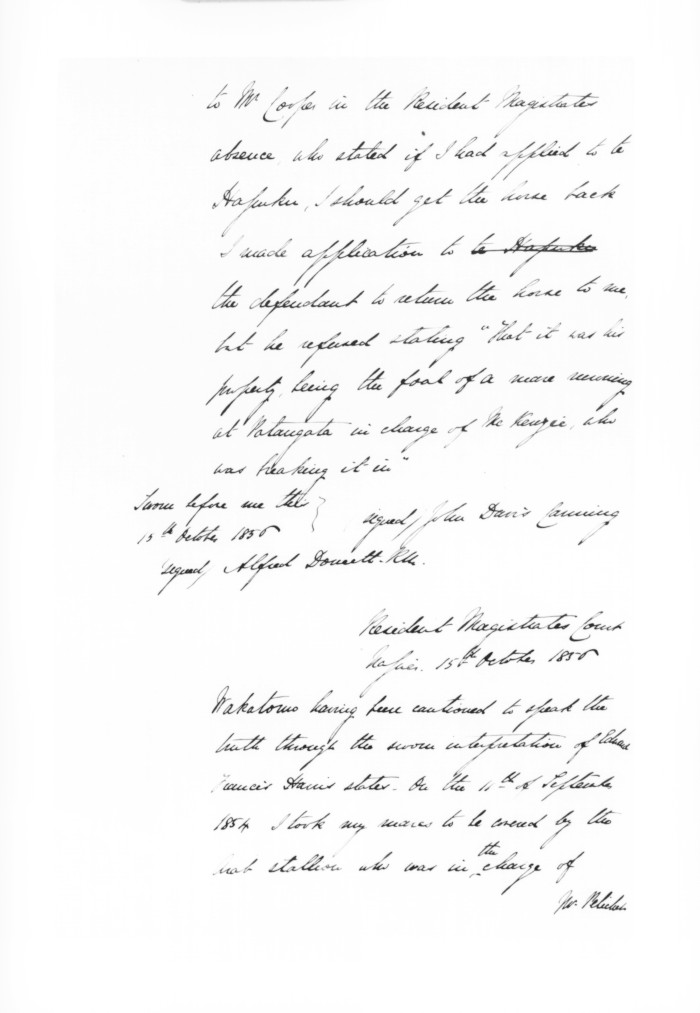 to Mr Cooper in the Resident Magistrates
absence who stated "if I had applied to te
Hapuku, I should get the horse back
I made application to te Hapuku
the defendant to return the horse to me,
but he refused stating "That it was his
property, being the foal of a mare running
at Patangata in charge of McKenzie, who
was breaking it in"
Sworn before me this
15th October 1856
signed/ John Davis Canning
signed/ Alfred Domett. RM.
Resident Magistrates Court
Napier. 15th October 1856
Wakatomo having been cautioned to speak the
truth through the sworn interpretation of Edward
Francis Harris states. On the 11th of September
1854 I took my mares to be covered by the
stallion who was in the charge of
Mr.